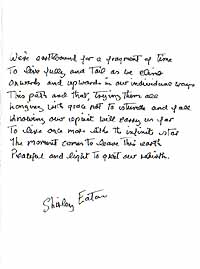 We're earthbound for a fragment of time
To live fully and toil as we climb
Onwards and upwards in our individual ways
This path and that, trying them all
Longing with grace not to and fall
Knowing our spirit will carry us far
To leave once more with th infinite star
The moment comes to leave this earth
Peaceful and light to greet our rebirth.
Shirley Eaton